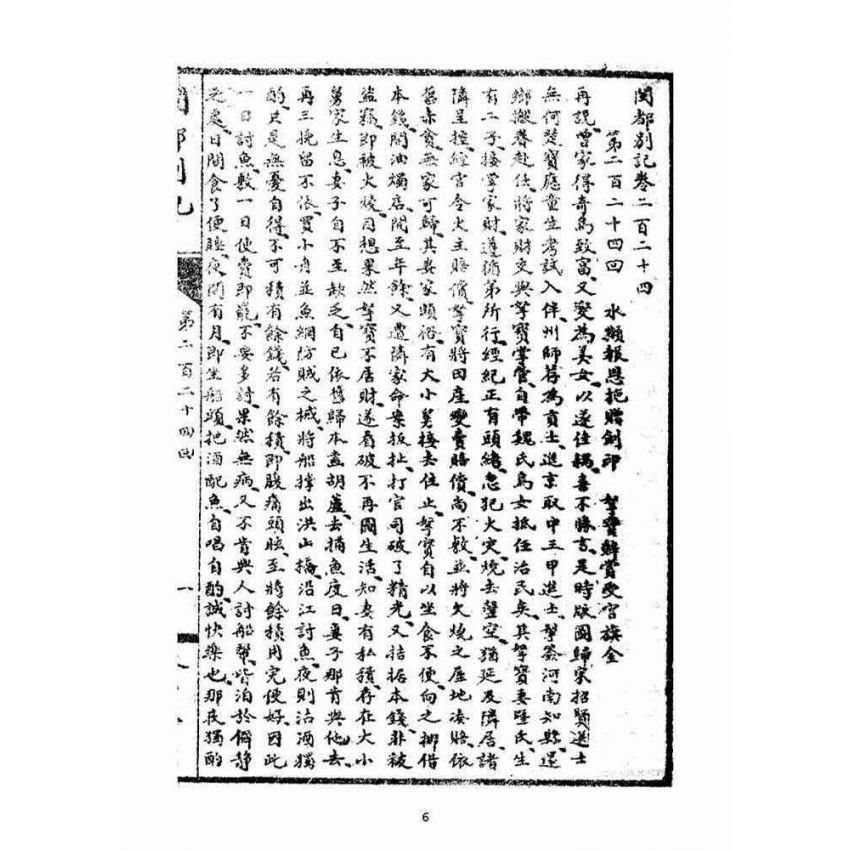 閩都別記卷二百二十四
第二百二十四回 水獺報恩拖贈劍印 拏寶辭賞受官旗金
再說曾家得奇鳥致富又變為美女以遂佳耦喜不勝言是時啟國歸宋招賢選士
無何楚寶應童生考試入伴州師荐為貢士進京取中三甲進士掣簽河南知縣遂
鄉搬眷赴任將家財交與拏寶掌管自帶魏氏鳥女抵任治民矣其拏寶妻曁氏生
有二子接掌家財遵循弟所行經紀正有頭緒忽犯火灾燒去罄空猶延及隣居諸
隣呈控經官令火主賠償拏寶將田產變賣賠償尚不敷並將欠燒之屋地凑賠依
舊赤貧無家可歸其妻家頗裕有大小舅接去住止拏寶自以坐食不便向之挪借
本錢開油燭店開至年餘又遭隣家命案扳扯打官司破了精光又拮据本錢非被
盜竊即被火燒因想果然拏寶不居財遂看破不再圖生活知妻有私積存在大小
舅家生息妻子自不至缺乏自己依舊歸本盖胡蘆去捕魚度日妻子那肯與他去
再三挽留不依買小舟並魚網防賊之械將船撑出洪山橋沿江討魚夜則沽酒獨
酌只是無憂自得不可積有餘錢若有餘積即腹痛頭眩至將餘積用完便好因此
一日討魚數一日使費即罷不要多討果然無病又不肯與人討船幫皆泊於僻靜
之處日間食了便睡夜間有月即坐船頭把酒配魚自唱自酌誠快樂也那夜獨酌
閩都別記
第二百二十四回
一
6